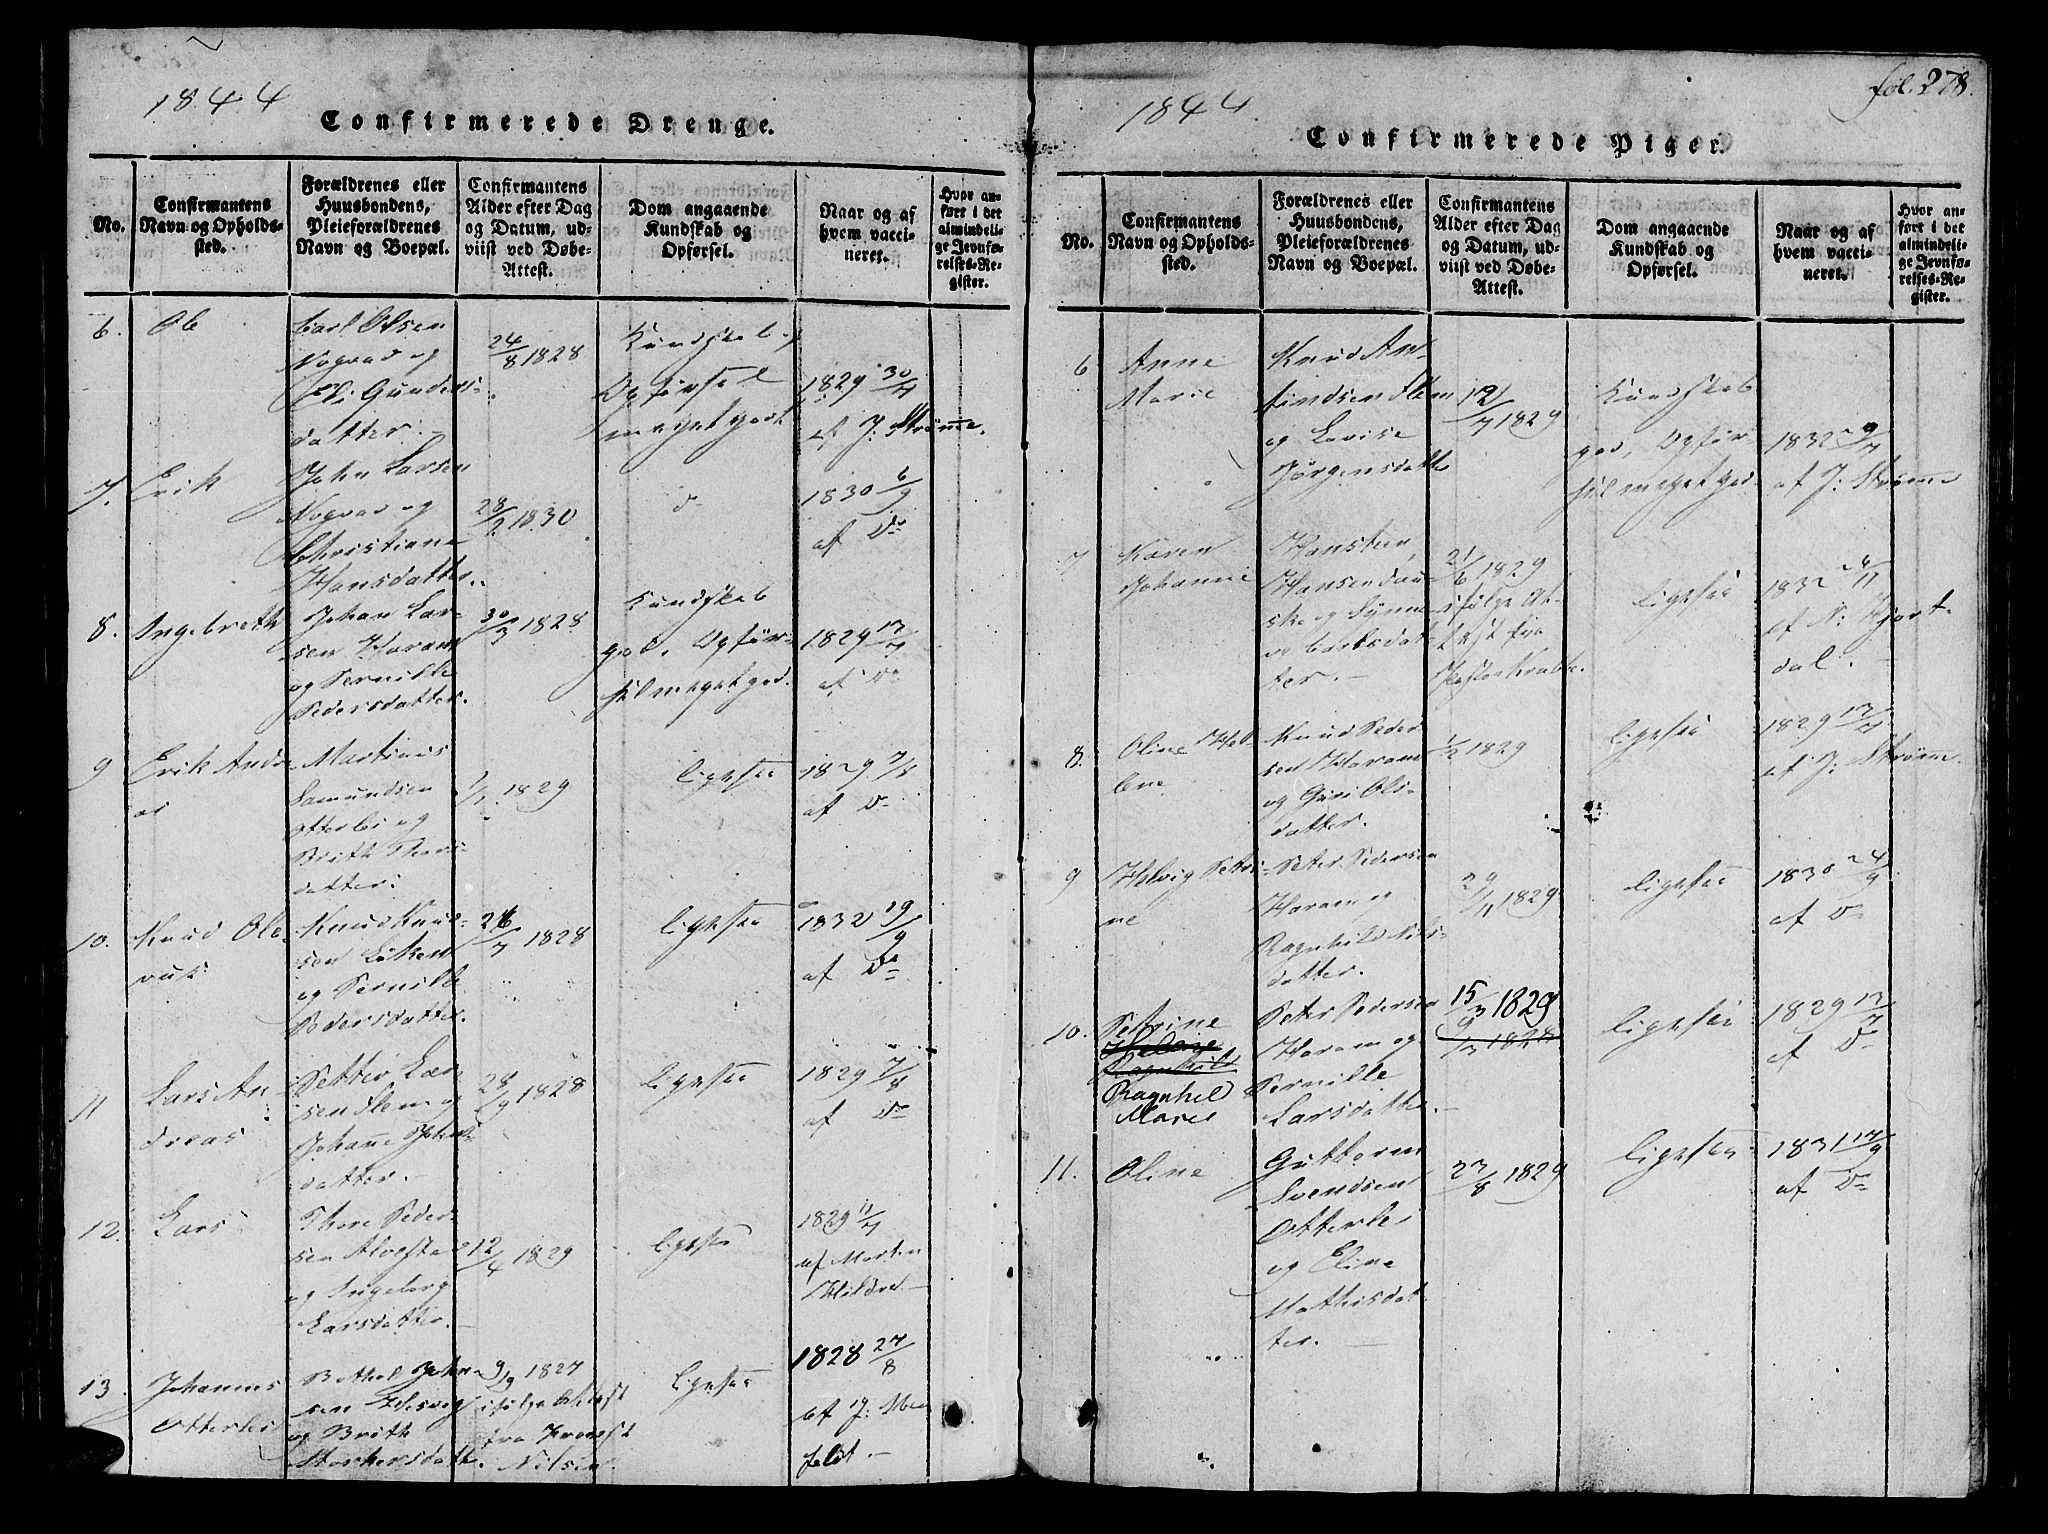 1844
Confirmerede Drenge.
No.
Confirmantens
Navn og Opholds-
sted.
Forældrenes eller
Huusbondens,
Pleieforældrenes
Navn og Boepæl.
Confirmantens
Alder efter Dag
og Datum, ud-
viist ved Døbe-
Attest.
Dom angaaende
Kundskab og
Opførsel.
Naar og af
hvem vacci-
neret.
Hvor an-
ført i det
almindeli-
ge Jevnfø-
relses-Re-
gister.
6.
Ob
Carl Olsen
Nogvad og
Eli Gunders-
datter.
24/8 1828
Kundskab og
Opførsel
meget godt
1829 30/7
af J. Strømme.
7.
Erik
John Larsen
Nogvad og
Christiane
Hansdatter.
28/2 1830
do
1830 6/9
af Do
8.
Ingebreth
Johan Lar-
sen Haram
og Pernille
Pedersdatter.
30/3 1828
Kundskab
god, Opfør-
sel meget god.
1829 13/7
af Do
9
Erik Andre-
as
Martinus
Samundsen
Otterlei og
Brith Thors-
datter.
1/1 1829
ligesaa
1829 7/8
af Do
10.
Knud Ole-
vus
Knud Knud-
sen Løken
og Pernille
Pedersdatter.
26/7 1828
ligesaa
1832 19/9
af Do
11
Lars An-
dreas
Petter Lar-
sen Flem og
Johanne Johns-
datter.
28/9 1828
ligesaa
1829 7/8
af Do
12.
Lars
Thore Peder-
sen Alvestad
og Ingeborg
Larsdatter.
12/4 1829
ligesaa
1829 11/7
af Morten
Hildre
13.
Johannes
Otterlei
Bethel John-
sen
og Brith
9/9 1827
ifølge Attest
fra Provst
Nilsen.
ligesaa
1828 27/8
af J.
feldt.
fol. 278.
1844.
Confirmerede Piger.
No.
Confirmantens
Navn og Opholds-
sted.
Forældrenes eller
Huusbondens,
Pleieforældrenes
Navn og Boepæl.
Confirmantens
Alder efter Dag
og Datum, ud-
viist ved Døbe-
Attest.
Dom angaaende
Kundskab og
Opførsel.
Naar og af
hvem vacci-
neret.
Hvor an-
ført i det
almindeli-
ge Jevnfø-
relses-Re-
gister.
6
Anne
Marie
Knud An-
findsen Flem
og Lovise
Jørgensdatter
12/7 1829
Kundskab
god, Opfør-
sel meget god.
1832 29/7
af J. Strømme
7
Karen
Johanne
Hansteen,
Hansen
og Synne-
ve Carlsdat-
ter.
21/6 1829
ifølge At-
test fra
Pastor Krabbe.
ligesaa
1832 26/11
af N. Hjort-
dal.
8.
Oline Hel-
lene
Knud Peder-
sen Haram
og Guri Ols-
datter.
1/2 1829
ligesaa
1829 13/7
af J. Strømme.
9
Helvig Petri-
ne
Peter Pedersen
Haram og
Ragnhild Nils-
datter.
29/11 1829
ligesaa
1830 24/9
af Do
10.
Petrine
Helene
Ragnhild
Ragnhild
Marie
Peter Pedersen
Haram og
Pernille
Larsdatter.
15/3 1829
ligesaa
1829 13/7
af Do
11.
Oline
Guttorm
Svendsen
Otterlei
og Eline
Mathisdat-
ter.
23/8 1829
ligesaa
1831 14/9
af Do